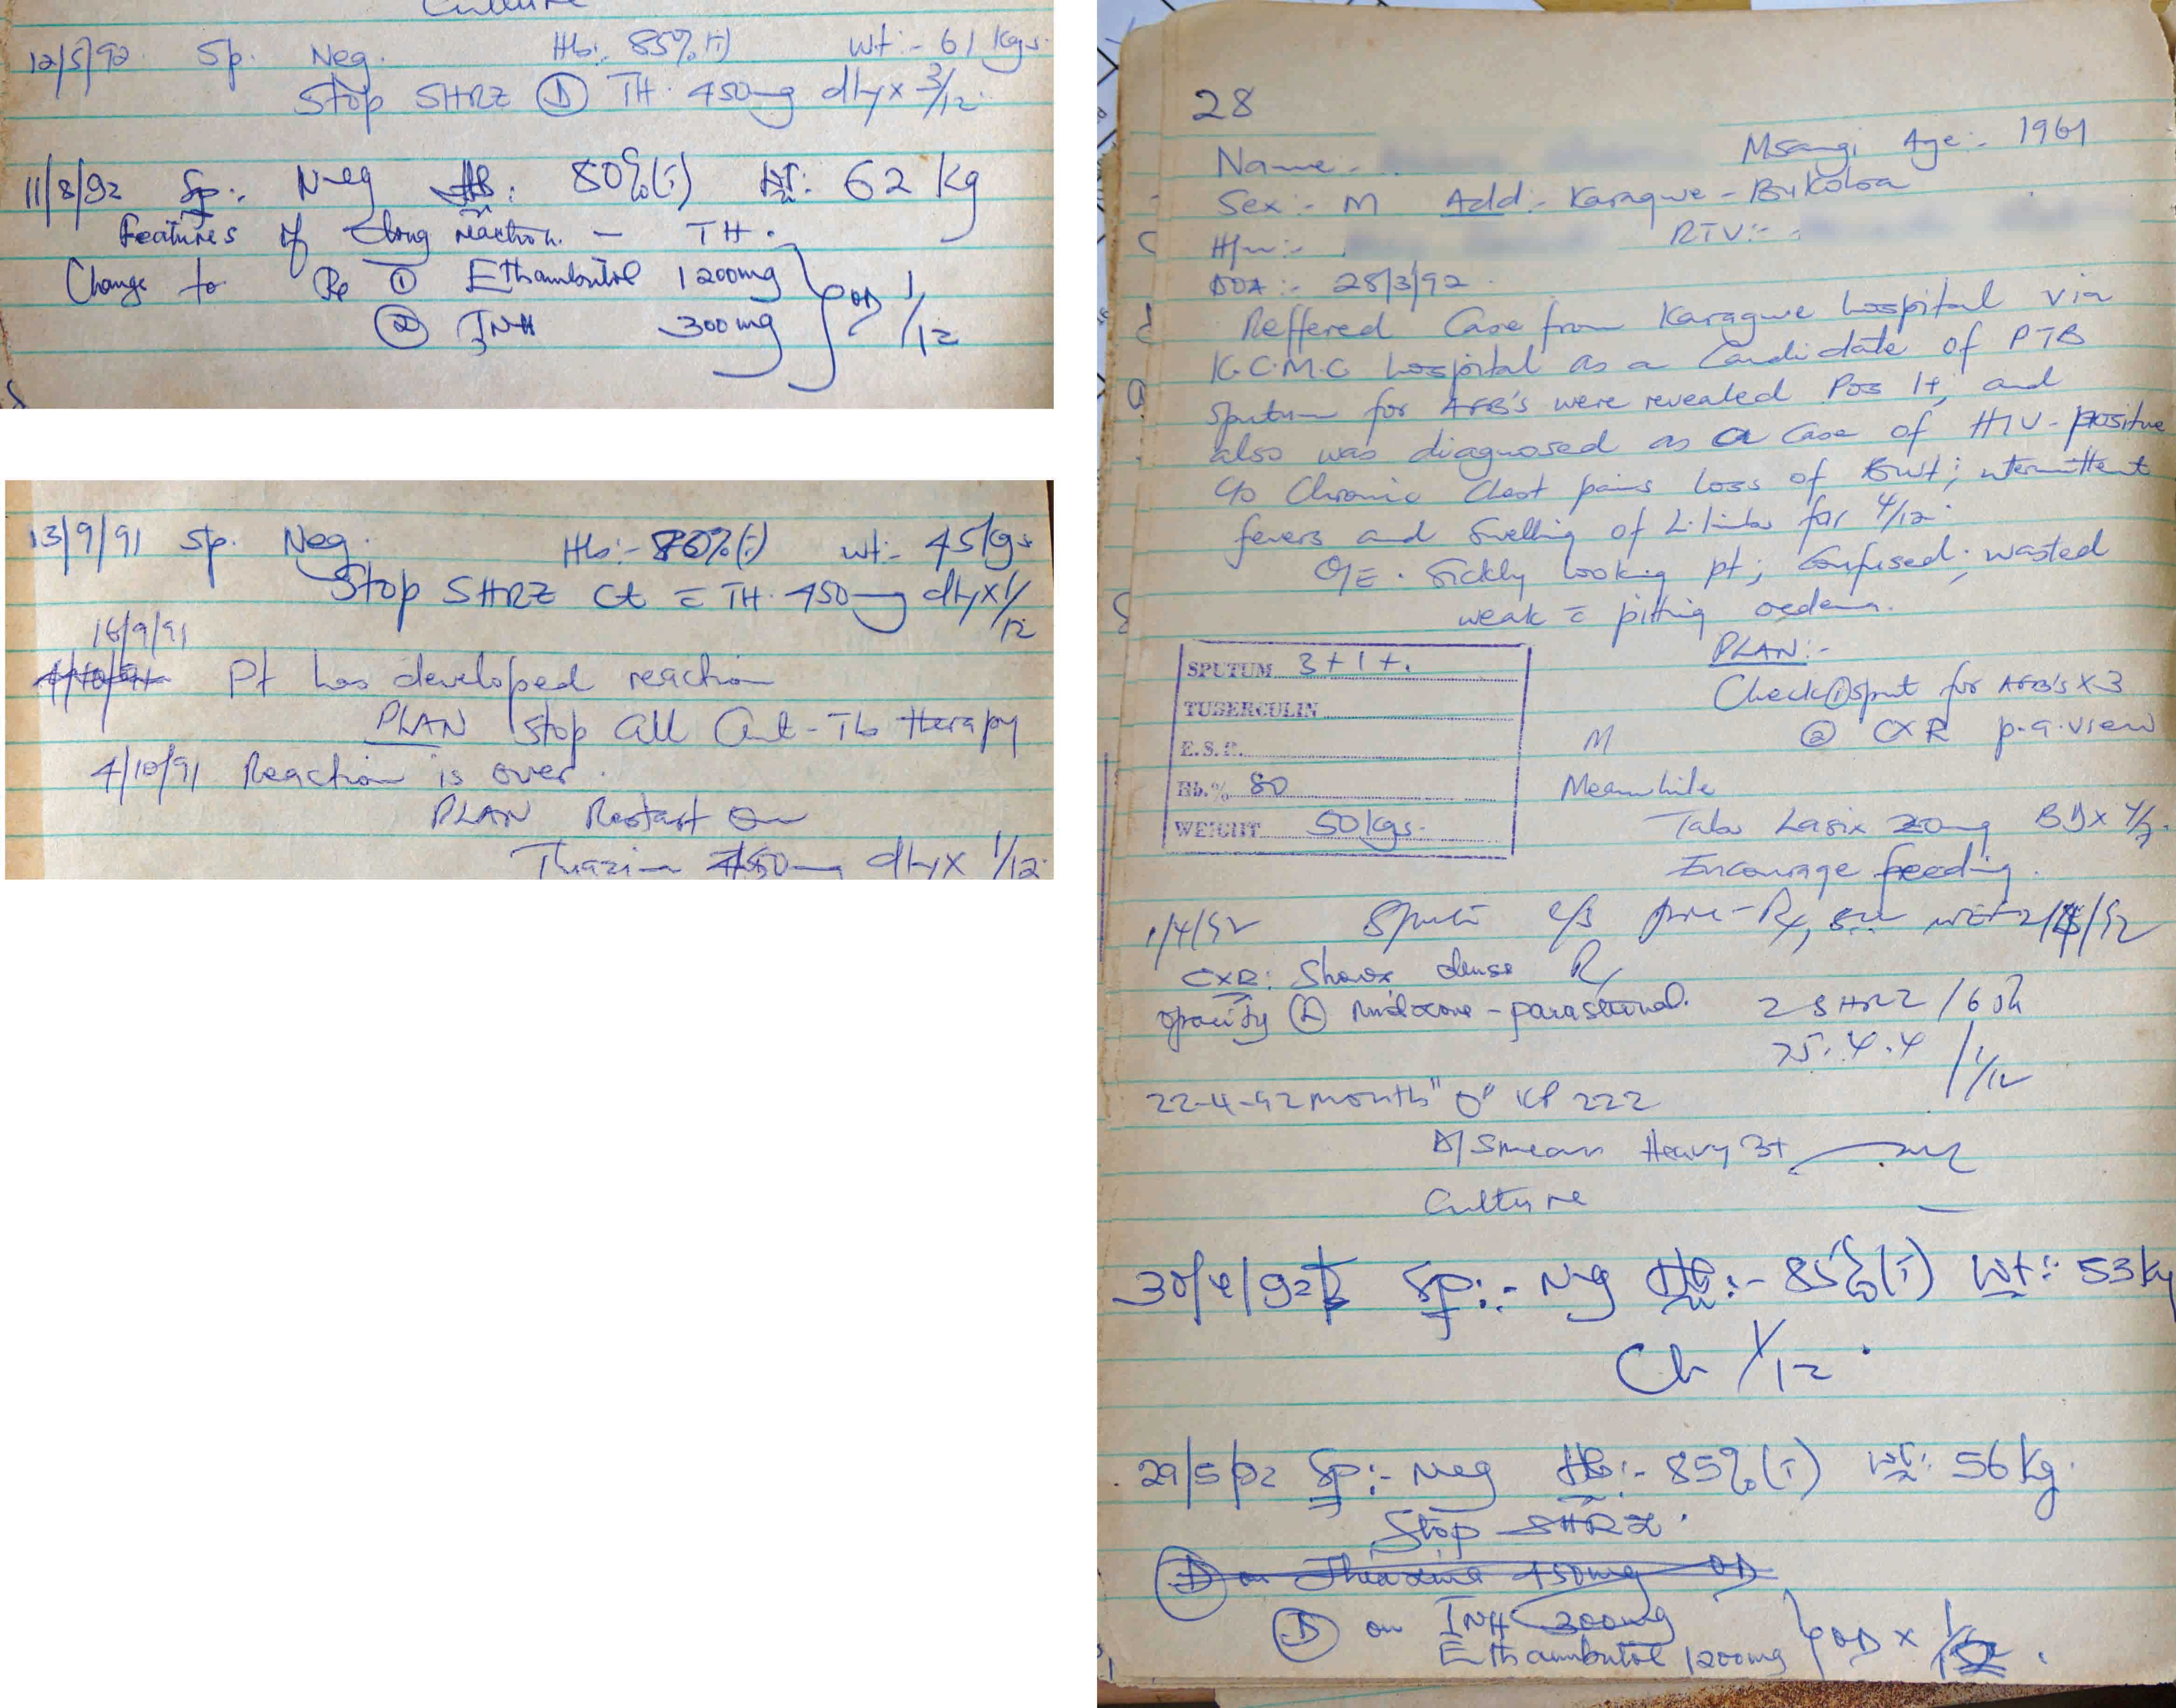 Culture
12/5/92 Sp. Neg. Hb:. 85% (i) Wt:- 61 Kgs.
Stop SHRZ Ⓓ TH. 450mg dly x 3/12.
11/8/92 Sp:. Neg Hb: 80%(i) Wt: 62 Kg
Features of drug reaction. - TH.
Change to Rx ① Ethambutol 1200mg
② INH 300mg } OD 1/12
13/9/91 Sp. Neg. Hb:- 80%(i) wt:- 45kgs
Stop SHRZ Ct c̄ TH. 450mg dly x 1/12
16/9/91
Pt has developed reaction
PLAN stop all Ant-Tb therapy
4/10/91 Reaction is over.
PLAN Restart on
Thiazina 450mg dly x 1/12.
28
Name:- Msangi Age:- 1961
Sex:- M Add:- Karagwe - Bukoba
RTV:-
DOA:- 28/3/92.
Reffered Case from Karagwe hospital via
K.C.M.C hospital as a Candidate of PTB
Sputum for AFB's were revealed Pos 1+, and
also was diagnosed as a Case of HIV-positive
c/o Chronic Chest pains loss of Bwt; intermittent
fevers and Swelling of L.limbs for 4/12.
O/E. Sickly looking pt; Confused; wasted
weak c̄ pitting oedema.
PLAN:-
SPUTUM 3+1+.
Check ① sput for AFB's x 3
TUBERCULIN
② CXR p.a. view
E.S.R. M
Hb.% 80 Meanwhile
WEIGHT 50kgs. Tabs Lasix 20mg BD x
Encourage feeding.
1/4/92 Sputum c/s pre-Rx,
CXR: Shows dense Rx
opacity Ⓛ Midzone - parasternal. 2SHRZ/6
25.4.4 / 1/12
22-4-92 month "O" KP 222
D/Smear Heavy 3+
Culture
30/4/92 Sp:.- Neg Hb:- 85%(i) Wt: 53kg
Ch 1/12.
29/5/92 Sp:- Neg Hb:- 85%(i) wt: 56kg.
Stop SHRZ.
Ⓓ on Thiazina 450mg OD
Ⓓ on INH 300mg
Ethambutol 1200mg } OD x